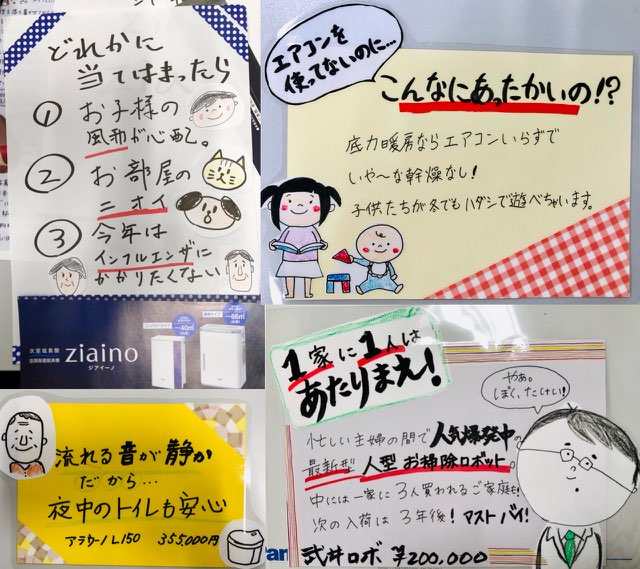 どれかに
当てはまったら
① お子様の
風邪が心配。
② お部屋の
ニオイ
③ 今年は
インフルエンザに
かかりたくない
次亜塩素酸
空間除菌脱臭機
ziaino
ジアイーノ
エアコンを
使ってないのに…
こんなにあったかいの!?
底力暖房ならエアコンいらずで
いや〜な乾燥なし!
子供たちが冬でもハダシで遊べちゃいます。
流れる音が静か
だから…
夜中のトイレも安心
アラウーノL150 355,000円
1家に1人は
あたりまえ!
やあ。
ぼく、たけい!
忙しい主婦の間で人気爆発中の
最新型 人型 お掃除ロボット
中には一家に3人買われるご家庭も!
次の入荷は3年後! マストバイ!
武井ロボ ¥200,000